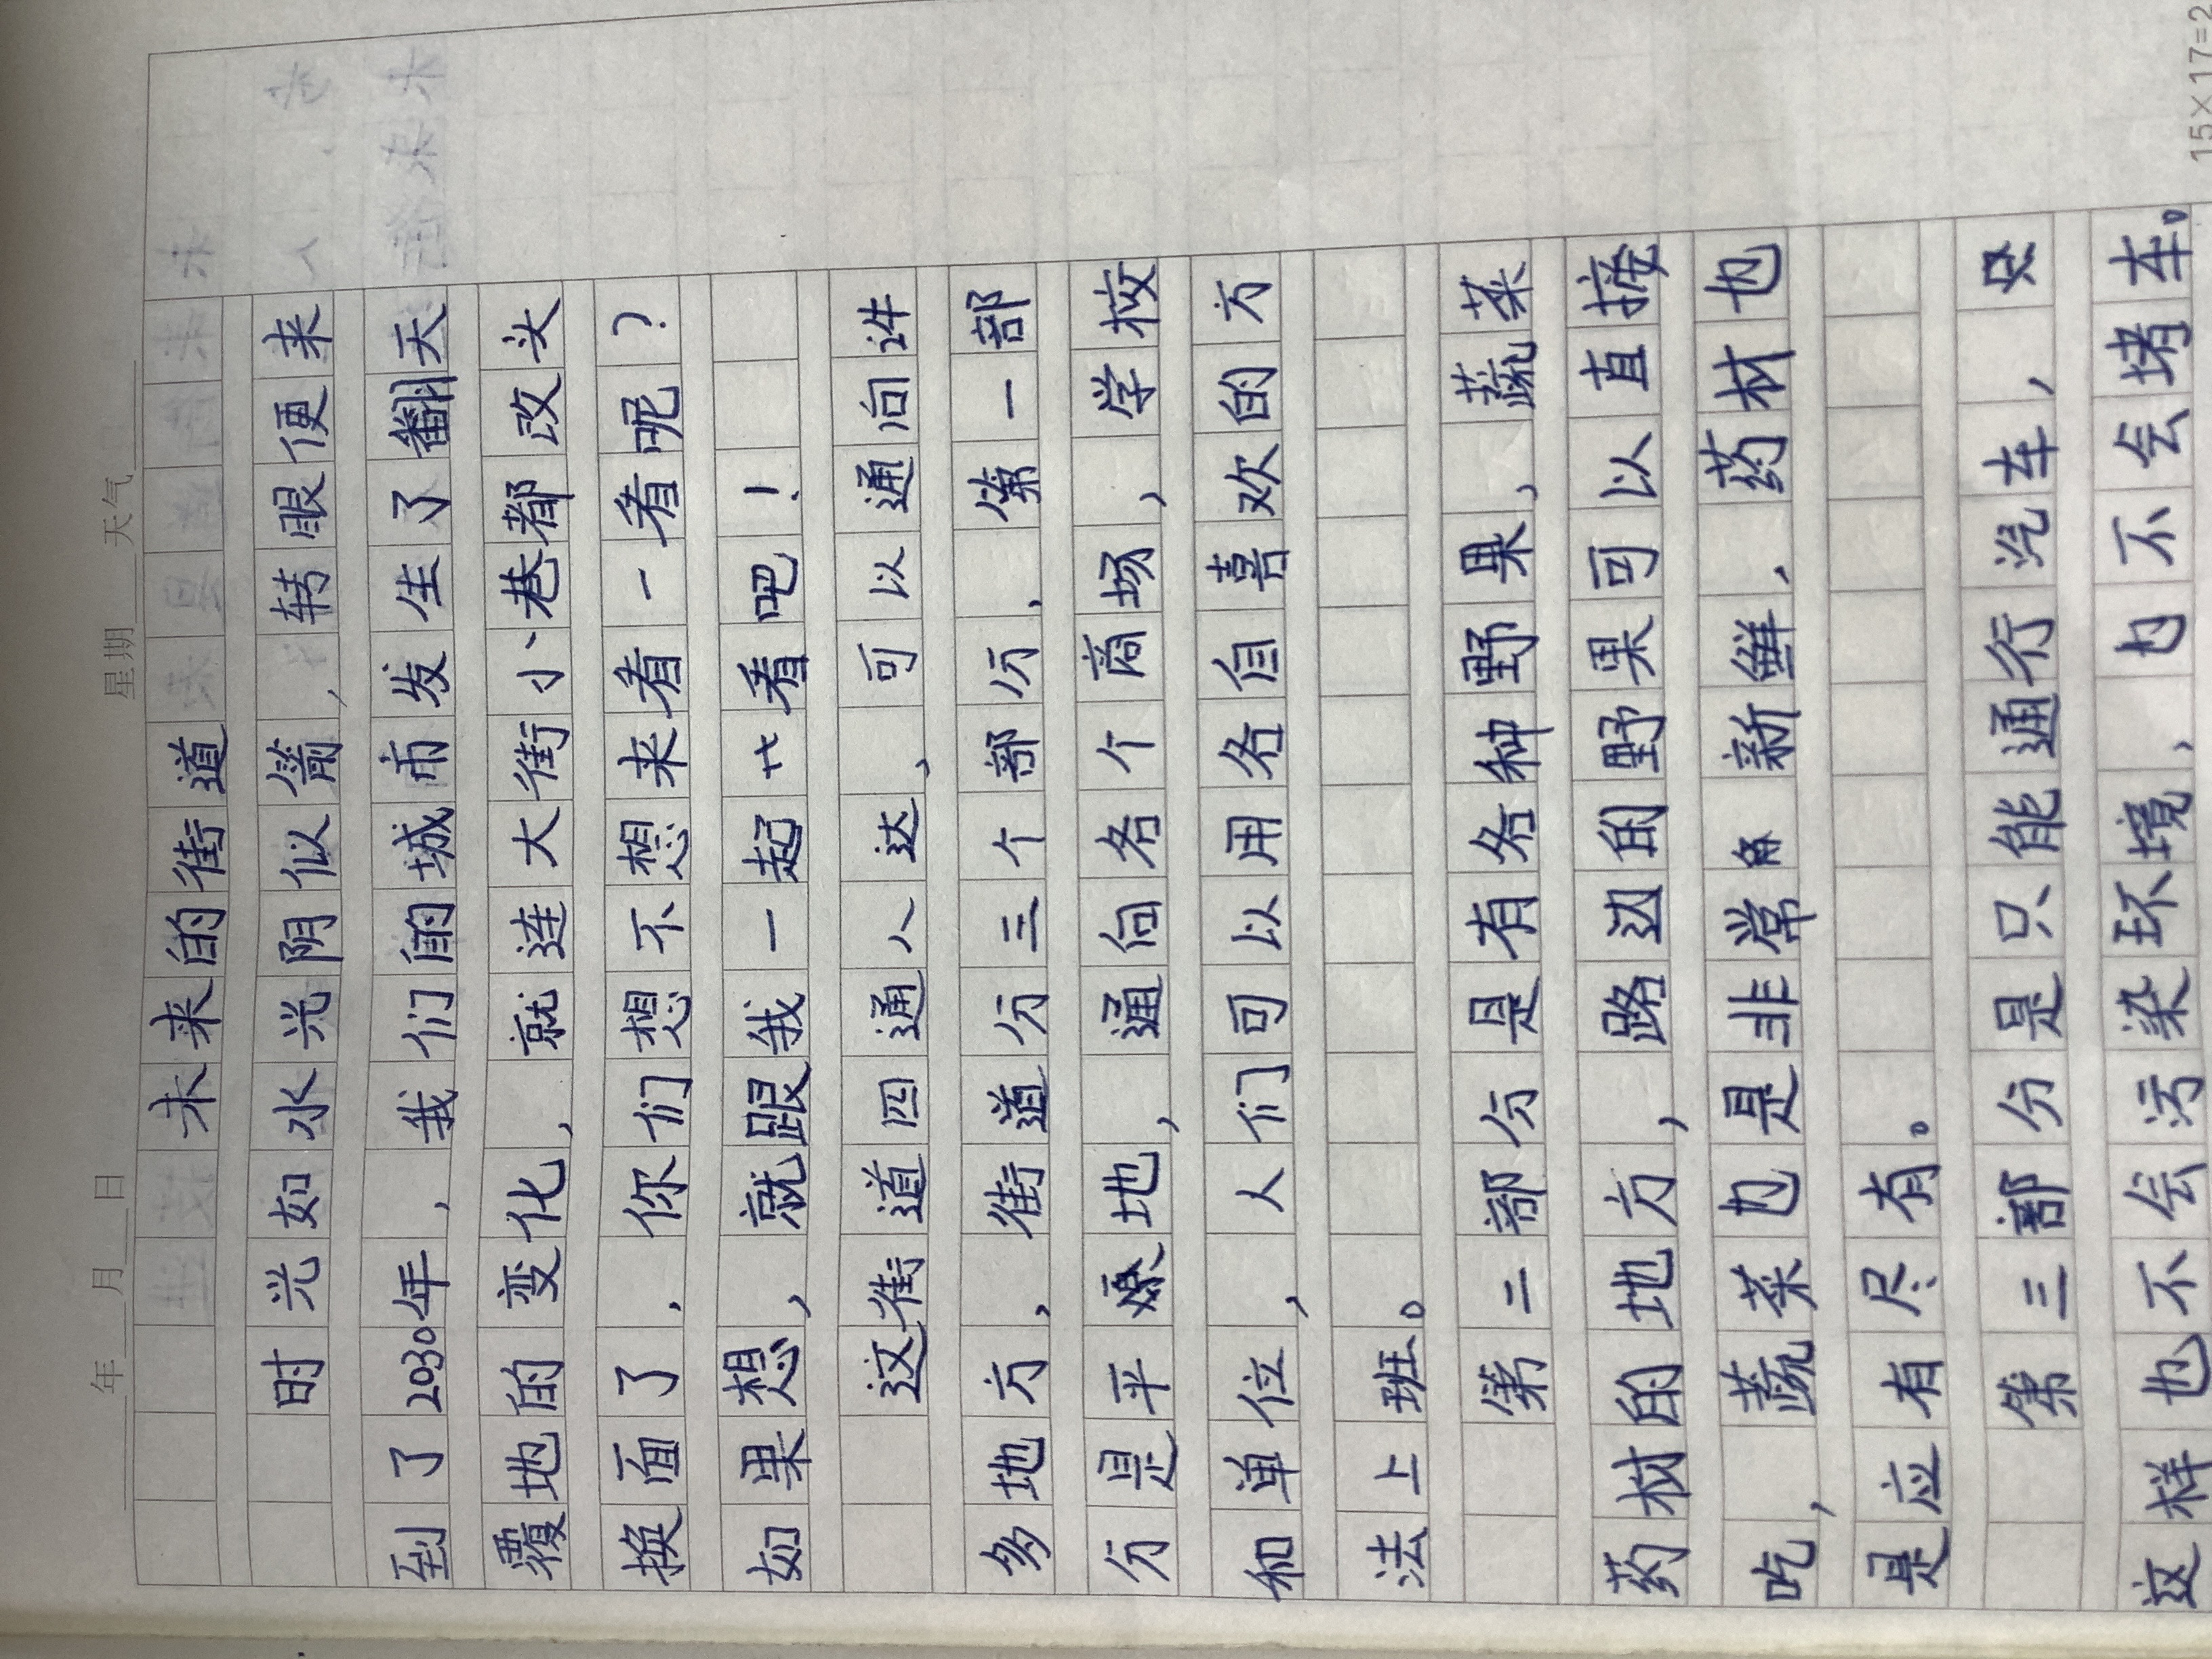 年 月 日 星期 天气
未来的街道
时光如水光阴似箭,转眼便来
到了2030年,我们的城市发生了翻天
覆地的变化,就连大街小巷都改头
换面了,你们想不想来看一看呢?
如果想,就跟我一起去看吧!
这街道四通八达,可以通向许
多地方,街道分三个部分,第一部
分是平地,通向各个商场,学校
和单位,人们可以用各自喜欢的方
法上班。
第二部分是有各种野果,蔬菜
药材的地方,路边的野果可以直接
吃,蔬菜也是非常新鲜,药材也
是应有尽有。
第三部分是只能通行汽车,
这样也不会污染环境,也不会堵车。
15×17=2